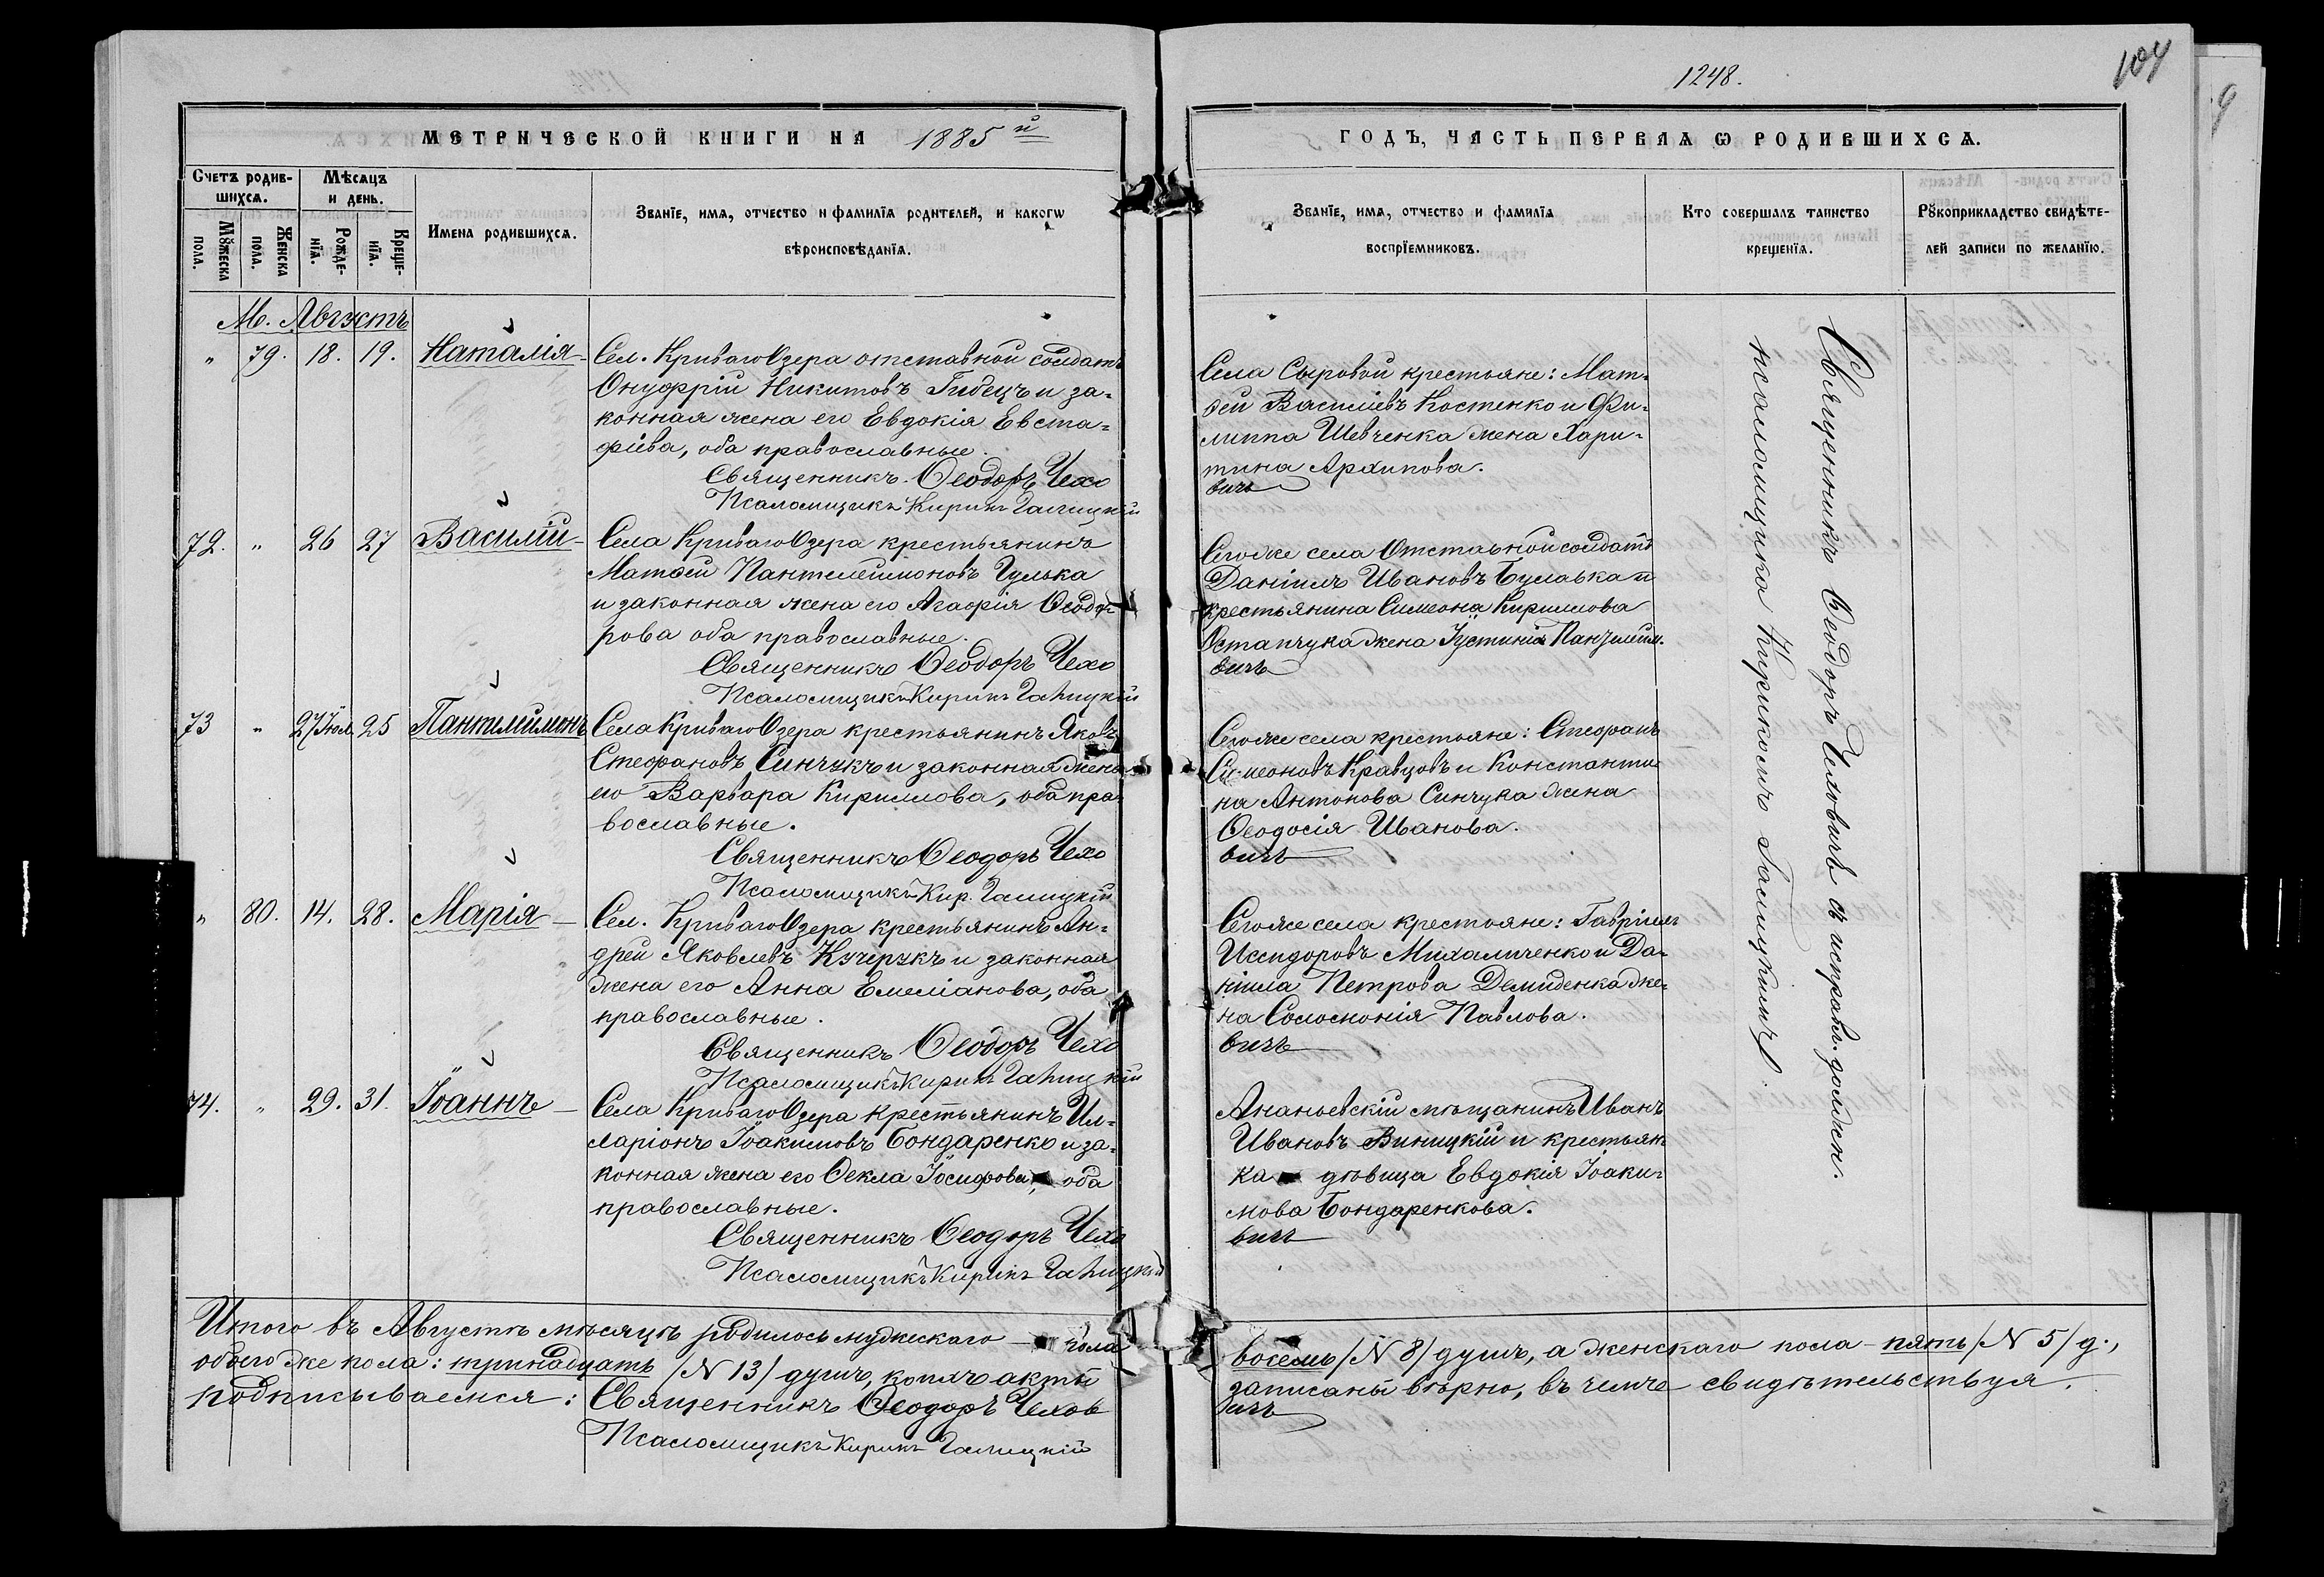 1248.
104
9
МЕТРИЧЕСКОЙ КНИГИ НА 1885й
ГОДЪ, ЧАСТЬ ПЕРВАЯ Ѡ РОДИВШИХСѦ.
Счетъ родив-
шихсѧ.
Мѣсѧцъ
и день.
Мꙋжеска
пола.
Женска
пола.
Рожде-
нїѧ.
Креще-
нїѧ.
Имена родившихсѧ.
Званїе, имѧ, отчество и фамилїѧ родителей, и какогѡ
вѣроисповѣданїѧ.
Званїе, имѧ, отчество и фамилїѧ
воспрїемниковъ.
Кто совершалъ таинство
крещенїѧ.
Рꙋкоприкладство свидѣте-
лей записи по желанїю.
М. Августъ
" 79. 18. 19. Наталія
Сел. Криваго Озера отставной солдатъ
Онуфрій Никитовъ Гидецъ и за=
конная жена его Евдокія Евста=
фіева, оба православные.
Священникъ Ѳеодоръ Чехо
Псаломщикъ Кирикъ Галицкій
Села Сыровой крестьяне: Мат=
ѳей Василіевъ Костенко и Фи=
липпа Шевченка жена Хари=
тина Архипова.
вичъ
72. " 26 27 Василій
Села Криваго Озера крестьянинъ
Матѳей Пантелеймоновъ Гулька
и законная жена его Агафія Ѳеодо=
рова оба православные.
Священникъ Ѳеодоръ Чехо
Псаломщикъ Кирикъ Галицкій
Тогоже села Отставной солдатъ
Даніилъ Ивановъ Булавка и
крестьянина Симеона Кириллова
Остапчука жена Іустинія Пантелейм.
вичъ
73 " 27 Іюл. 25 Пантелеймонъ
Села Криваго Озера крестьянинъ Яковъ
Стефановъ Синчукъ и законная жена
его Варвара Кириллова, оба пра=
вославные.
Священникъ Ѳеодоръ Чехо
Псаломщикъ Кир. Галицкій
Тогоже села крестьяне: Стефанъ
Симеоновъ Кравцовъ и Константи=
на Антонова Синчука жена
Ѳеодосія Иванова.
вичъ
" 80. 14. 28. Марія
Сел. Криваго Озера крестьянинъ Ан=
дрей Яковлевъ Кучерукъ и законная
жена его Анна Емеліанова, оба
православные.
Священникъ Ѳеодоръ Чехо
Псаломщикъ Кирикъ Галицкій
Тогоже села крестьяне: Гавріилъ
Исидоровъ Михаличенко и Да=
ніила Петрова Демиденка же=
на Соломонія Павлова.
вичъ
74. " 29. 31. Іоаннъ
Села Криваго Озера крестьянинъ Ил=
ларіонъ Іоакимовъ Бондаренко и за=
конная жена его Ѳекла Іосифова, оба
православные.
Священникъ Ѳеодоръ Чехо
Псаломщикъ Кирикъ Галицкій
Ананьевскій мѣщанинъ Иванъ
Ивановъ Виницкій и крестьян
ка дѣвица Евдокія Іоаки=
мова Бондаренкова.
вичъ
Священникъ Ѳеодоръ Чеховичъ съ исправ. должн.
псаломщика Кирикомъ Галицкимъ.
Итого въ Августѣ мѣсяцѣ родилось мужескаго пола
восемь /N 8/ душъ, а женскаго пола - пять /N 5/ д.,
обоего же пола: тринадцать /N 13/ душъ, коихъ акты
записаны вѣрно, въ чемъ свидѣтельствуя
подписываемся: Священникъ Ѳеодоръ Чехов
ичъ
Псаломщикъ Кирикъ Галицкій